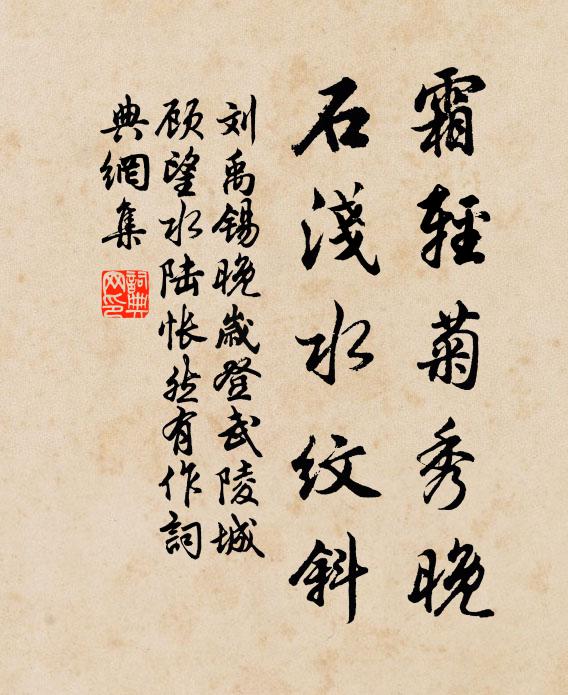 霜輕菊秀晚
石淺水紋斜
刘禹锡晚岁登武陵城
顾望水陆怅然有作詞
典網集
詞典网印